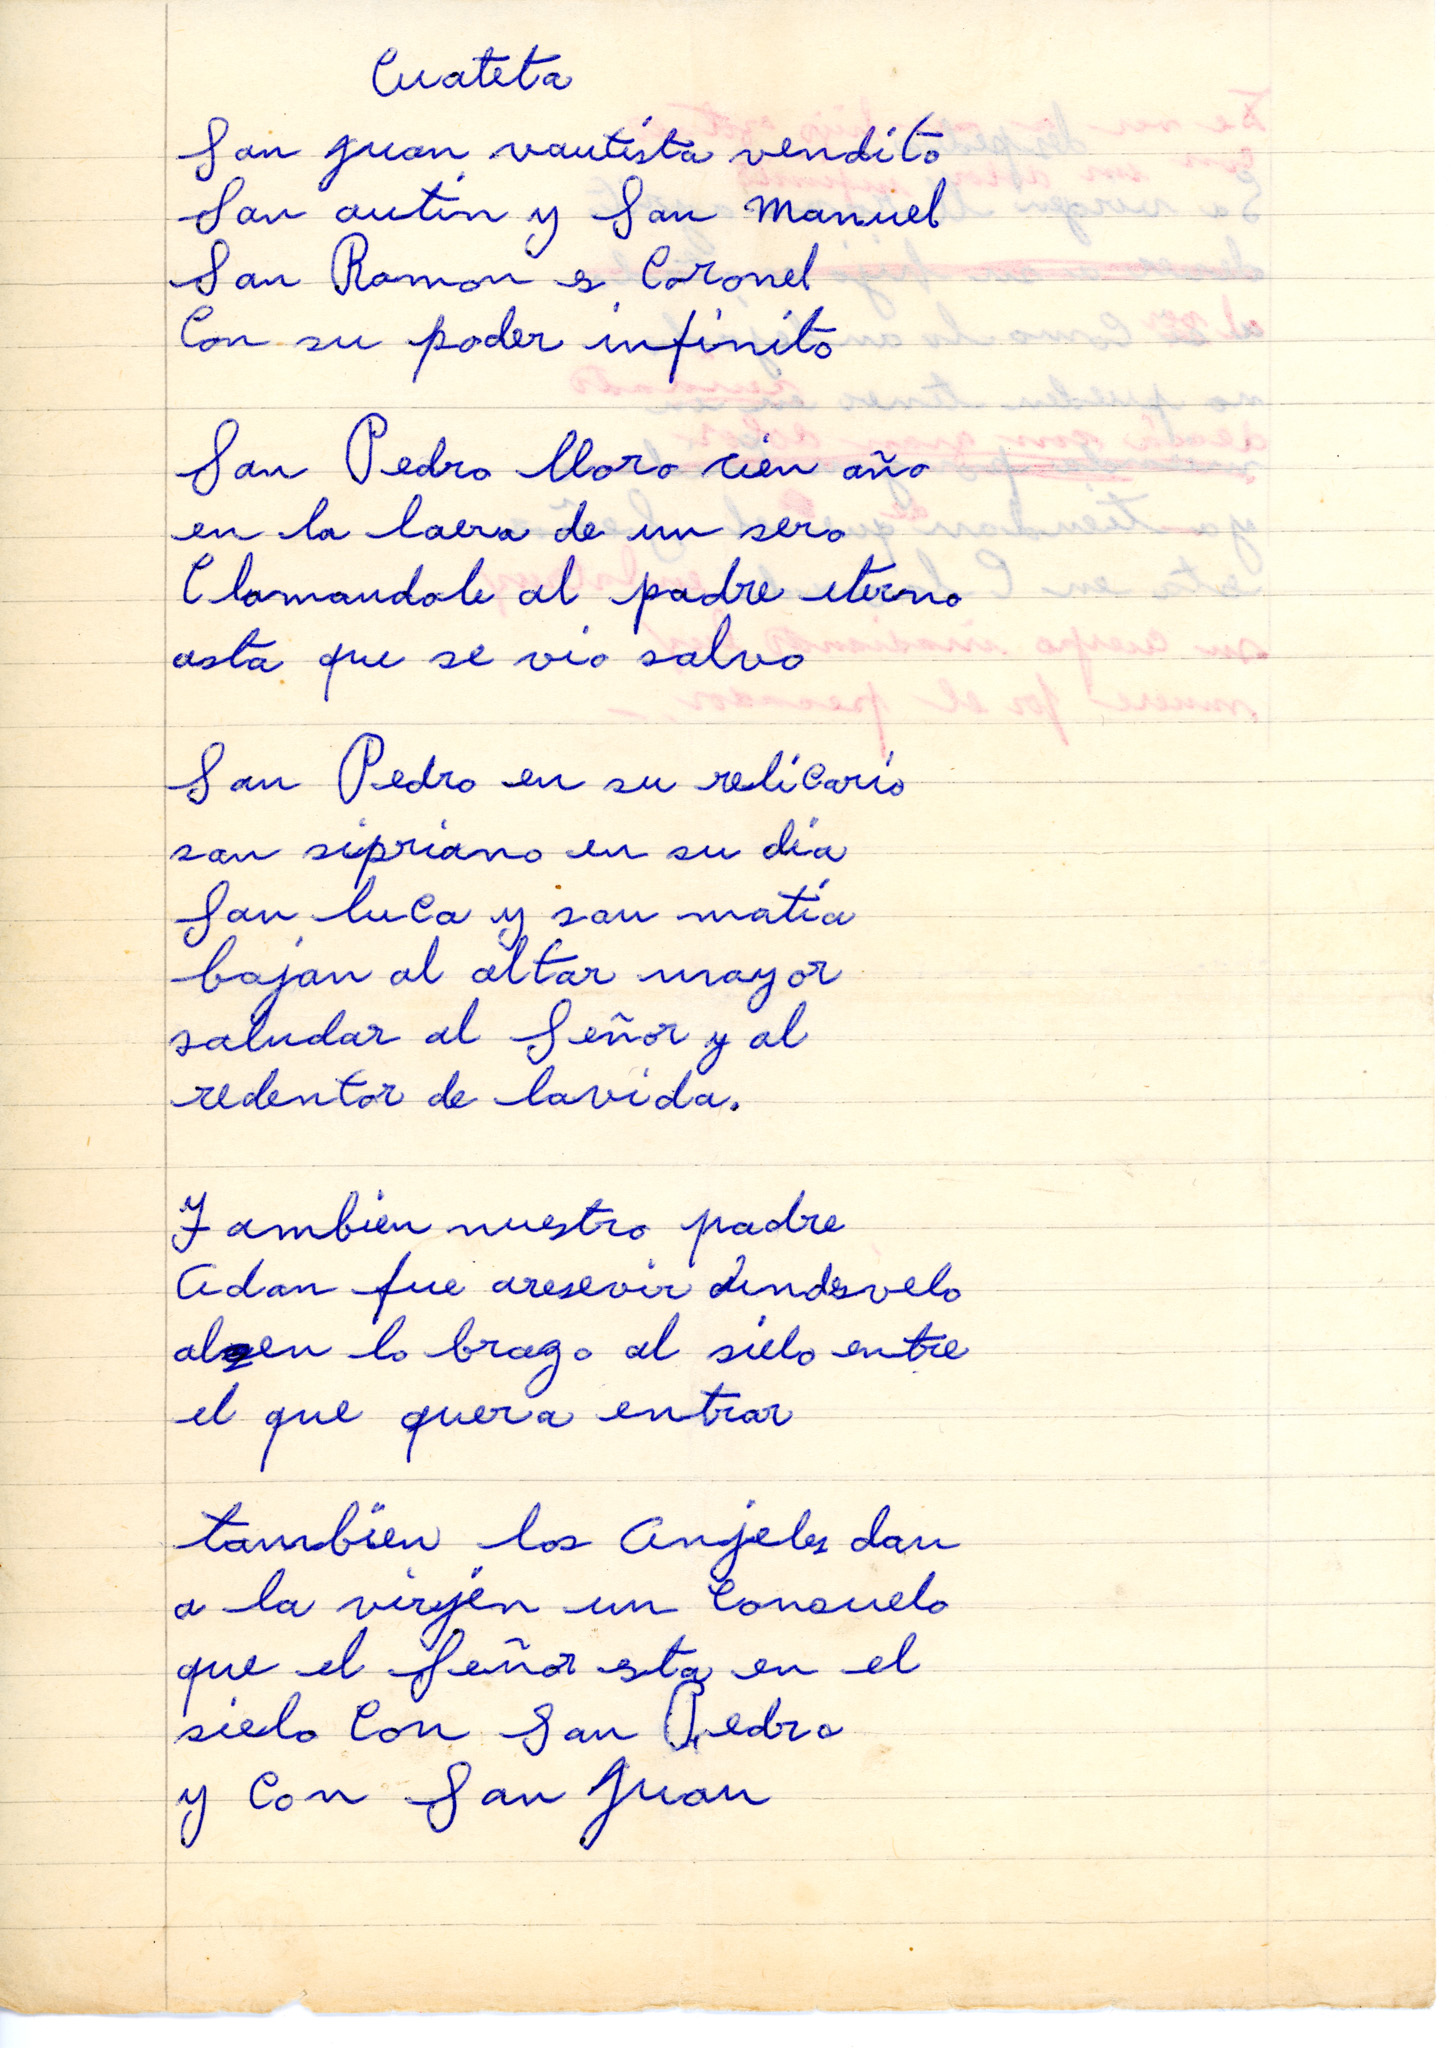 Cuateta
San juan vautista vendito
San autin y San Manuel
San Ramon es Coronel
Con su poder infinito
San Pedro lloro cien año
en la laera de un sero
Clamandole al padre eterno
asta que se vio salvo
San Pedro en su relicario
san sipriano en su dia
San luca y san matia
bajan al altar mayor
saludar al Señor y al
redentor de lavida.
Tambien nuestro padre
Adan fue aresevir
en lo brazo al sielo entre
el que quera entrar
tambien los Anjeles dan
a la virjen un Consuelo
que el Señor esta en el
sielo Con San Pedro
y Con San Juan